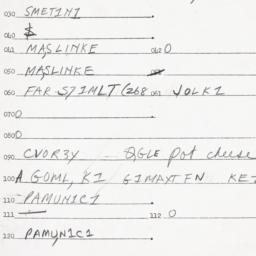 030 SMET1N1
040 $
041 MASLINKE 042 0
050 MASLINKE
060 FAR S71MLT (268 061 YOLK1
070 0
080 0
090 CVOR3Y - QGLE pot cheese
100 A GOML, K1 G1MAXT FN KE
110 PAMUN1C1
111 — 112 0
120 PAMYN1C1